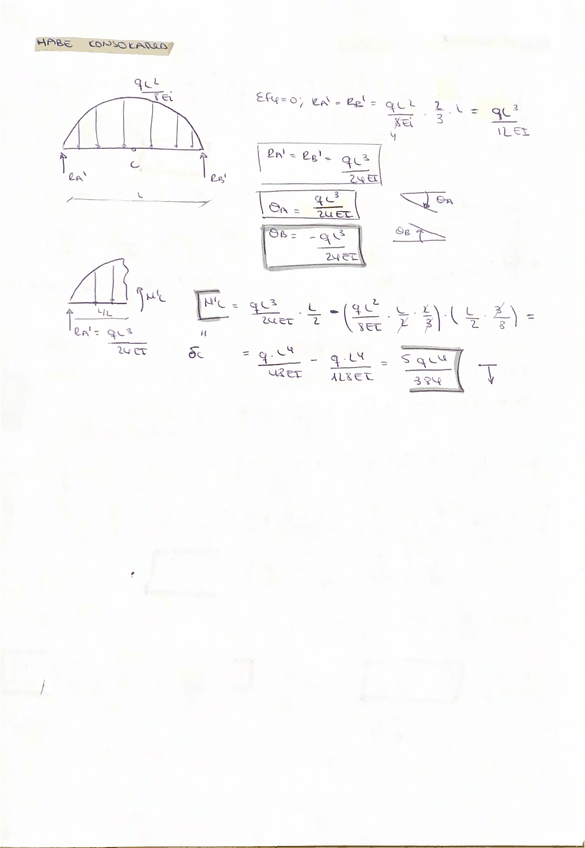 HABE KONJOKATUA
qL²/8Ei
C
RA' RB'
L
ΣFy=0; RA' = RB' = qL²/8Ei · 2/3 · L = qL³/12EI
4
RA' = RB' = qL³/24EI
θA = qL³/24EI
θA
θB = -qL³/24EI
θB
M'c
L/2
RA' = qL³/24EI
M'c = qL³/24EI · L/2 - (qL²/8EI · L/2 · 2/3) · (L/2 · 3/8) =
"
δc = q·L⁴/48EI - q·L⁴/128EI = 5qL⁴/384